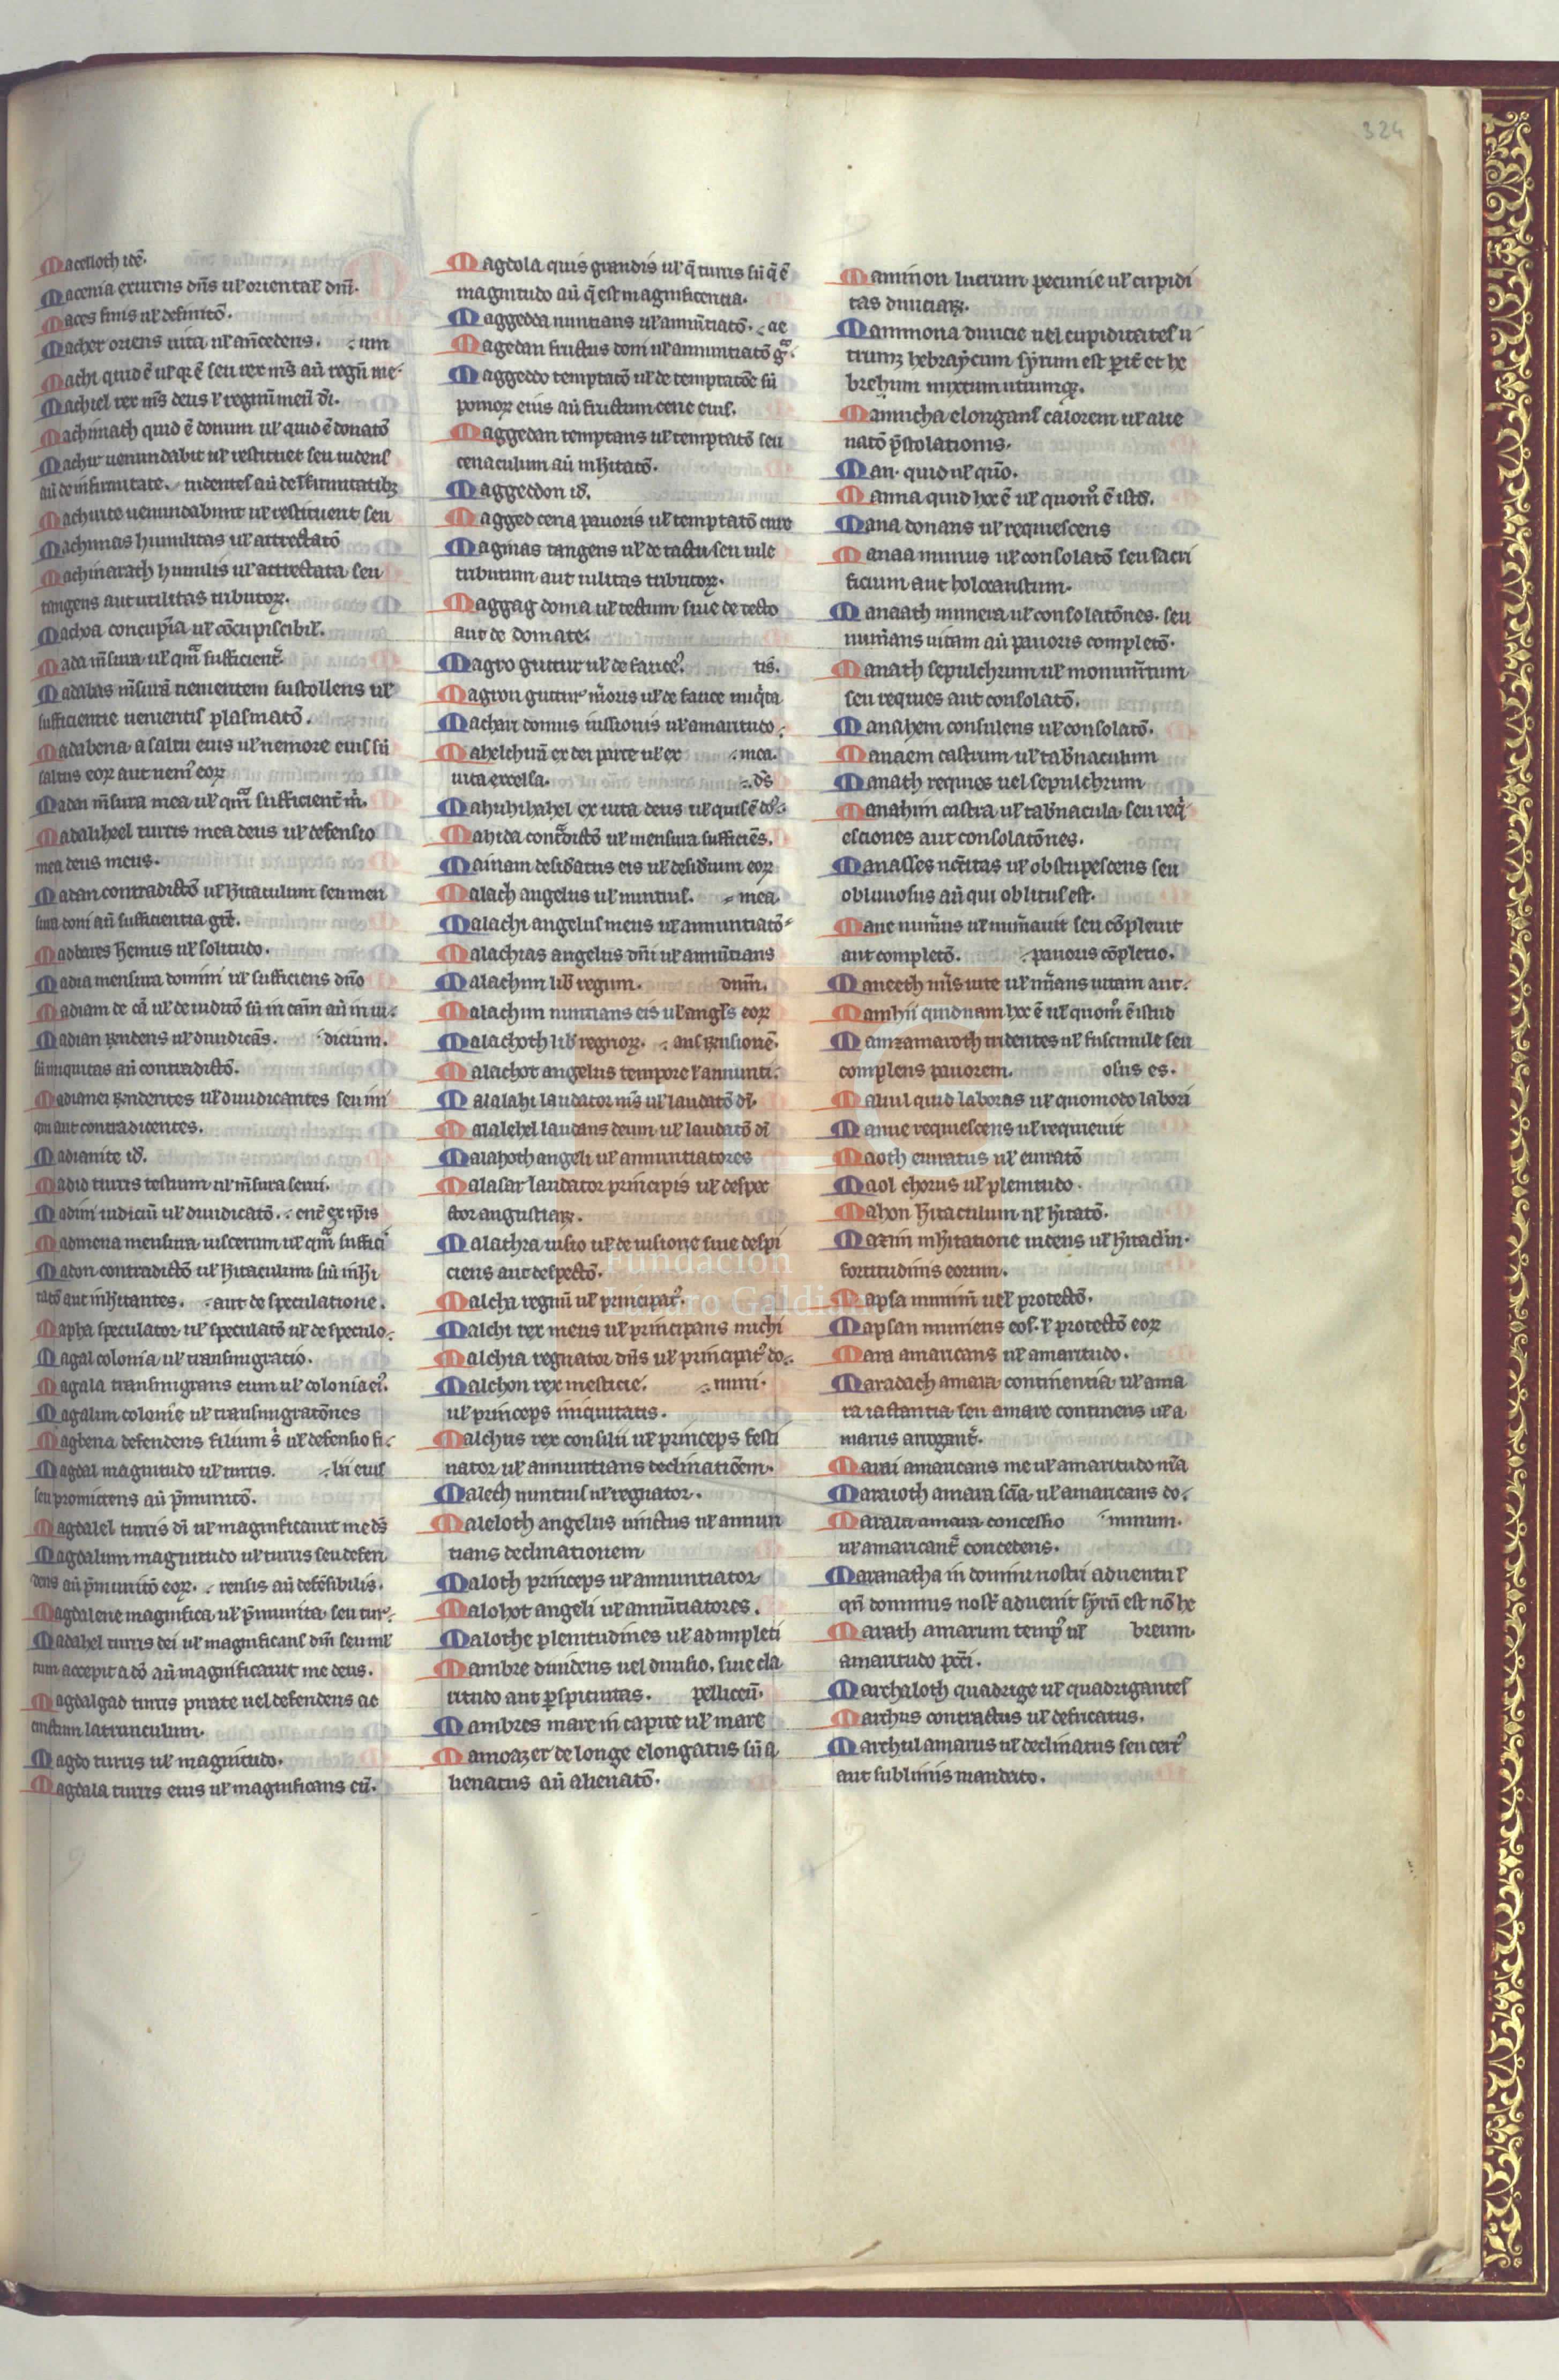 324
Macelloth idē.
Macenia exurens dn̄s ul' oriental' dn̄i.
Maces finis ul' definitō.
Macher oriens uita ul' an̄cedens. um
Machi quid ē ul' q̄ ē seu rex m̄s aū regnū me
Machiel rex m̄s deus l' regnū meū di.
Machinach quid ē donum ul' quid ē donatō
Machir uenundabit ul' restituet seu uidens
aū de infirmitate. uidentes aū de infirmitatibꝫ
Machirite uenundabunt ul' restituent seu
Machmas humilitas ul' attrectatō
Machinarach humilis ul' attrectata seu
tangens aut utilitas tributoꝝ.
Machoa concupīa ul' cōcupiscibil'.
Mada m̄sura ul' qm̄ sufficient.
Madalas m̄surā uementem sustollens ul'
sufficientie uementis plasmatō.
Madabena a saltu eius ul' nemore eius siū
saltus eoꝝ aut nem' eoꝝ
Madai m̄sura mea ul' qm̄ sufficient m̄.
Madaliheel turris mea deus ul' defensio
mea deus meus.
Madan contradictō ul' hitaculum seu men
sura doni aū sufficientia grē.
Madbares hemus ul' solitudo.
Madia mensura domini ul' sufficiens dn̄o
Madiam de cā ul' de iudicō siū in cām aū in iu
Madian rn̄dens ul' diiudicās. dicium.
siū iniquitas aū contradictō.
Madianei rn̄dentes ul' diiudicantes seu ini
qui aut contradicentes.
Madianite id.
Madio turris testium ul' m̄sura semi.
Madim iudiciū ul' diiudicatō. ent' ex ip̄is
Madmena mensura uiscerum ul' qm̄ suffici
Madon contradictō ul' hitaculum siū inhi
tatō aut inhitantes. aut de speculatione.
Mapha speculator ul' speculatō ul' de speculo
Magal colonia ul' transmigratio.
Magala transmigrans eum ul' colonia ei'.
Magalim colonie ul' transmigratōnes
Magbena defendens filium s' ul' defensio fi
Magdal magnitudo ul' turris. lii eius
seu promittens aū p̄munitō.
Magdalel turris di ul' magnificauit me ds
Magdalum magnitudo ul' turris seu defen
dens aū p̄munitō eoꝝ. rensis aū defēsibilis.
Magdalene magnifica ul' p̄munita seu tur
Madahel turris dei ul' magnificans dm̄ seu ml'
tum accepit a dō aū magnificauit me deus.
Magdalgad turris pirate uel defendens ac
cinctum latrunculum.
Magdo turris ul' magnitudo.
Magdala turris eius ul' magnificans eū.
Magdola quis grandis ul' q̄ turris siū q̄ ē
magnitudo aū q̄ est magnificentia.
Maggedda nuntians ul' annūtiatō. ac
Magedan fructus doni ul' annuntiatō g
Maggeddo temptatō ul' de temptatōe siū
pomoꝝ eius aū fructum cene eius.
Maggedan temptans ul' temptatō seu
cenaculum aū inhitatō.
Maggeddon id.
Magged cena pauoris ul' temptatō cure
Magmas tangens ul' de tactu seu uile
tributum aut uilitas tributoꝝ.
Maggag doma ul' tectum siue de tecto
aut de domate.
Magro guttur ul' de fauce. tis.
Magron guttur m̄oris ul' de fauce iniq̄ta
Machari domus iussionis ul' amaritudo
Mahelchuā ex dei parte ul' ex mea.
uita excelsa. ds
Mahuhihahel ex uita deus ul' quis ē ds
Mahida contᵃdictō ul' mensura sufficiēs.
Mainam desid'atus eis ul' desid'ium eoꝝ
Malach angelus ul' nuntius. mea.
Malachi angelus meus ul' annuntiatō
Malachias angelus dn̄i ul' annūtians
Malachim lib' regum. dnm̄.
Malachim nuntians eis ul' angl's eoꝝ
Malachoth lib' regnoꝝ. aus rn̄sionē.
Malachot angelus tempore l' annunti
Malalahi laudator m̄s ul' laudatō di.
Malalehel laudans deum ul' laudatō di
Malahoth angeli ul' annuntiatores
Malasar laudator principis ul' despec
ctor angustiaꝝ.
Malathra uisio ul' de uisione siue despi
ciens aut despectō.
Malcha regnū ul' principat'.
Malchi rex meus ul' principans michi
Malchia regnator dn̄s ul' principat' do
Malchon rex mesticie. mini.
ul' princeps iniquitatis.
Malchus rex consilii ul' princeps festi
nator ul' annuntians declinatiōem.
Malech nuntius ul' regnator.
Maleloth angelus uinctus ul' annun
tians declinationem
Maloth princeps ul' annuntiator
Malohot angeli ul' annūtiatores.
Malothe plenitudines ul' adimpleti
Mambre diuidens uel diuisio. siue cla
ritudo aut p̄spicuitas. pelliceū.
Mambres mare in capite ul' mare
Mamoazer de longe elongatus siū a
lienatus aū alienatō.
Maminon lucrum pecunie ul' cupidi
tas diuiciaꝝ.
Mammona diuicie uel cupiditates u
trumꝫ hebraycum syrum est p̄it et he
brehum mixtum utrumqꝫ.
Manucha elongans calorem ul' alie
natō p̄stolationis.
Man. quid ul' quo.
Manna quid hoc ē ul' quom̄ ē istd.
Mana donans ul' requiescens
Manaa munus ul' consolatō seu sacri
ficium aut holocaustum.
Manaath munera ul' consolatōnes. seu
num̄ans uitam aū pauoris completō.
Manath sepulchrum ul' monumentum
seu requies aut consolatō.
Manahem consulens ul' consolatō.
Manaem castrum ul' tab'naculum
Manath requies uel sepulchrum
Manahim castra ul' tab'nacula seu req'
esciones aut consolatōnes.
Manasses nc̄itas ul' obstupescens seu
obliuiosus aū qui oblitus est.
Mane num̄us ul' num̄auit seu cōpleuit
aut completō. pauoris cōpletio.
Maneeth m̄s uite ul' m̄ans uitam aut
Mamhii quidnam hoc ē ul' quom̄ ē istud
Mamzamaroth uidentes ul' fuscinule seu
complens pauorem. osus es.
Maiul quid laboras ul' quomodo labori
Manue requiescens ul' requieuit
Maoth cunatus ul' cunatō
Maol chorus ul' plenitudo.
Mahon hitaculum ul' hitatō.
Maozin inhitatione uidens ul' hitaclm̄.
fortitudinis eorum.
Mapsa munim̄ uel' protectō.
Mapsan muniens eos. l' protectō eoꝝ
Mara amaricans ul' amaritudo.
Maradach amara continentia ul' ama
ra iactantia seu amare continens ul' a
marus arrogant'.
Marai amaricans me ul' amaritudo m̄a
Maraioth amara scīa ul' amaricans do
Marala amara concessio minum.
ul' amaricant' concedens.
Maranatha in domini nostri aduentu l'
qn̄ dominus nost' aduenit syrū est nō he
Marath amarum temp' ul' breum.
amaritudo pcci.
Marchaloth quadrige ul' quadrigantes
Marchus contractus ul' defricatus.
Marchul amarus ul' declinatus seu cert'
aut sublimis mandato.
Fundación
Lázaro Galdiano